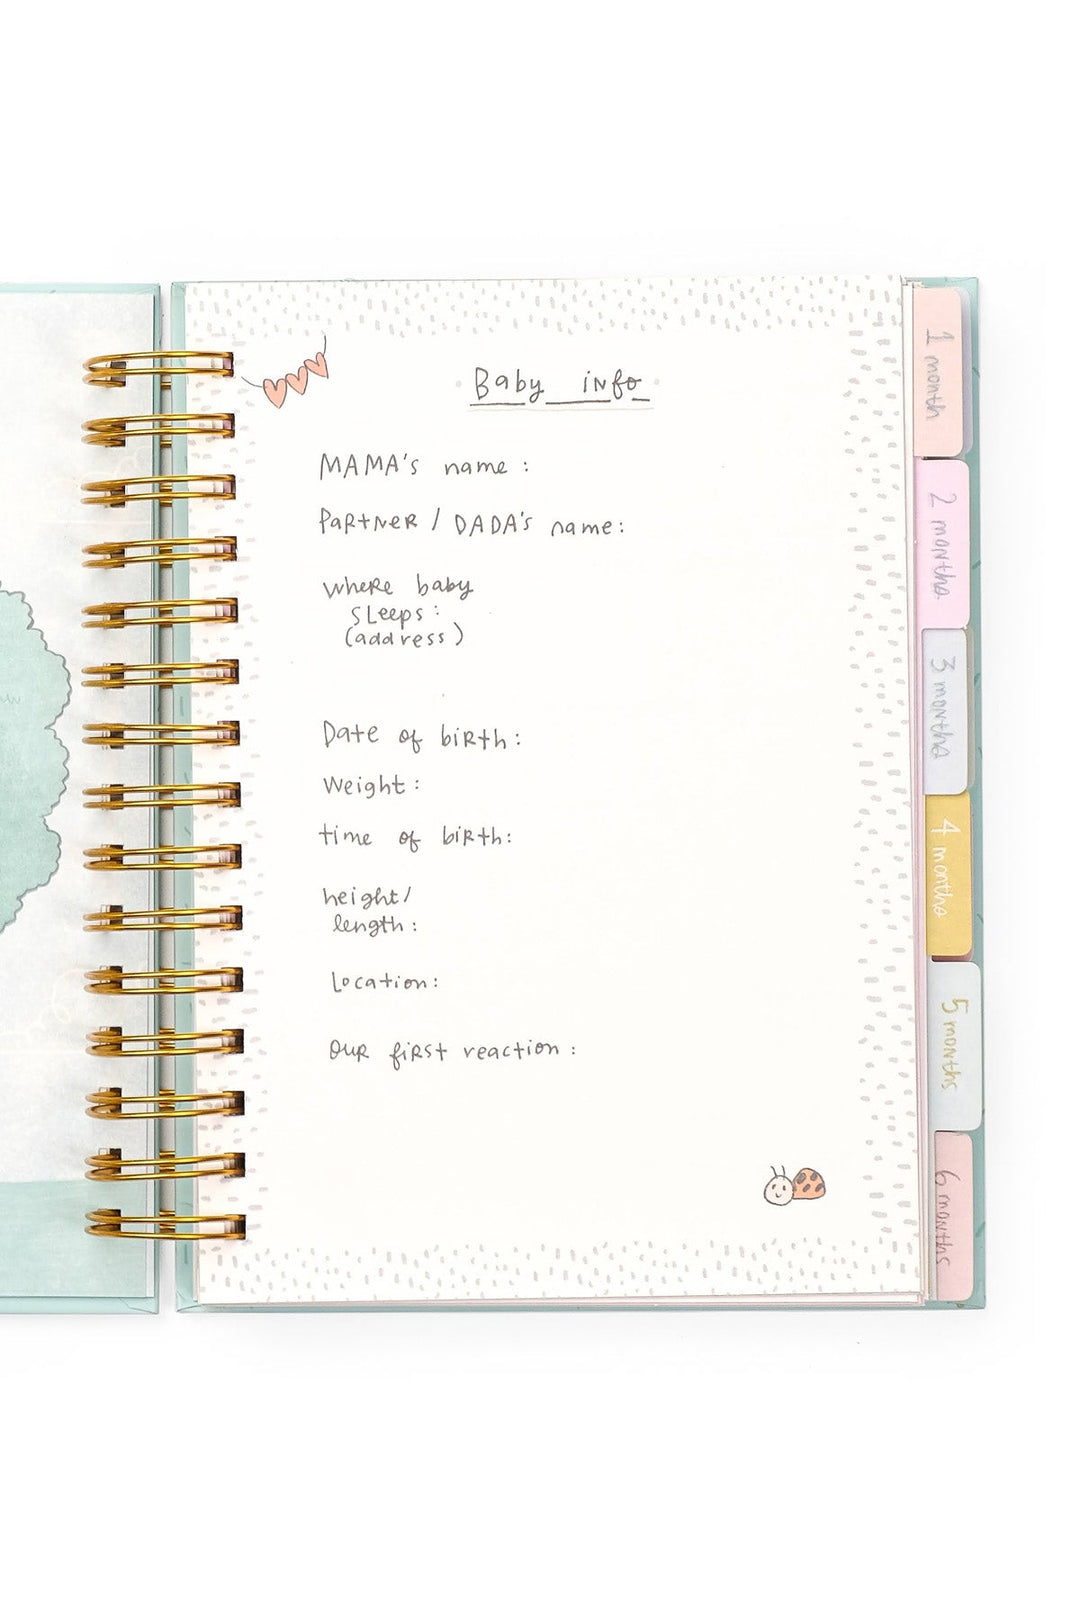 Baby info
MAMA's name :
PARTNER / DADA's name:
where baby
sleeps:
(address)
Date of birth:
Weight:
time of birth:
height/
length:
Location:
Our first reaction:
1 month
2 months
3 months
4 months
5 months
6 months